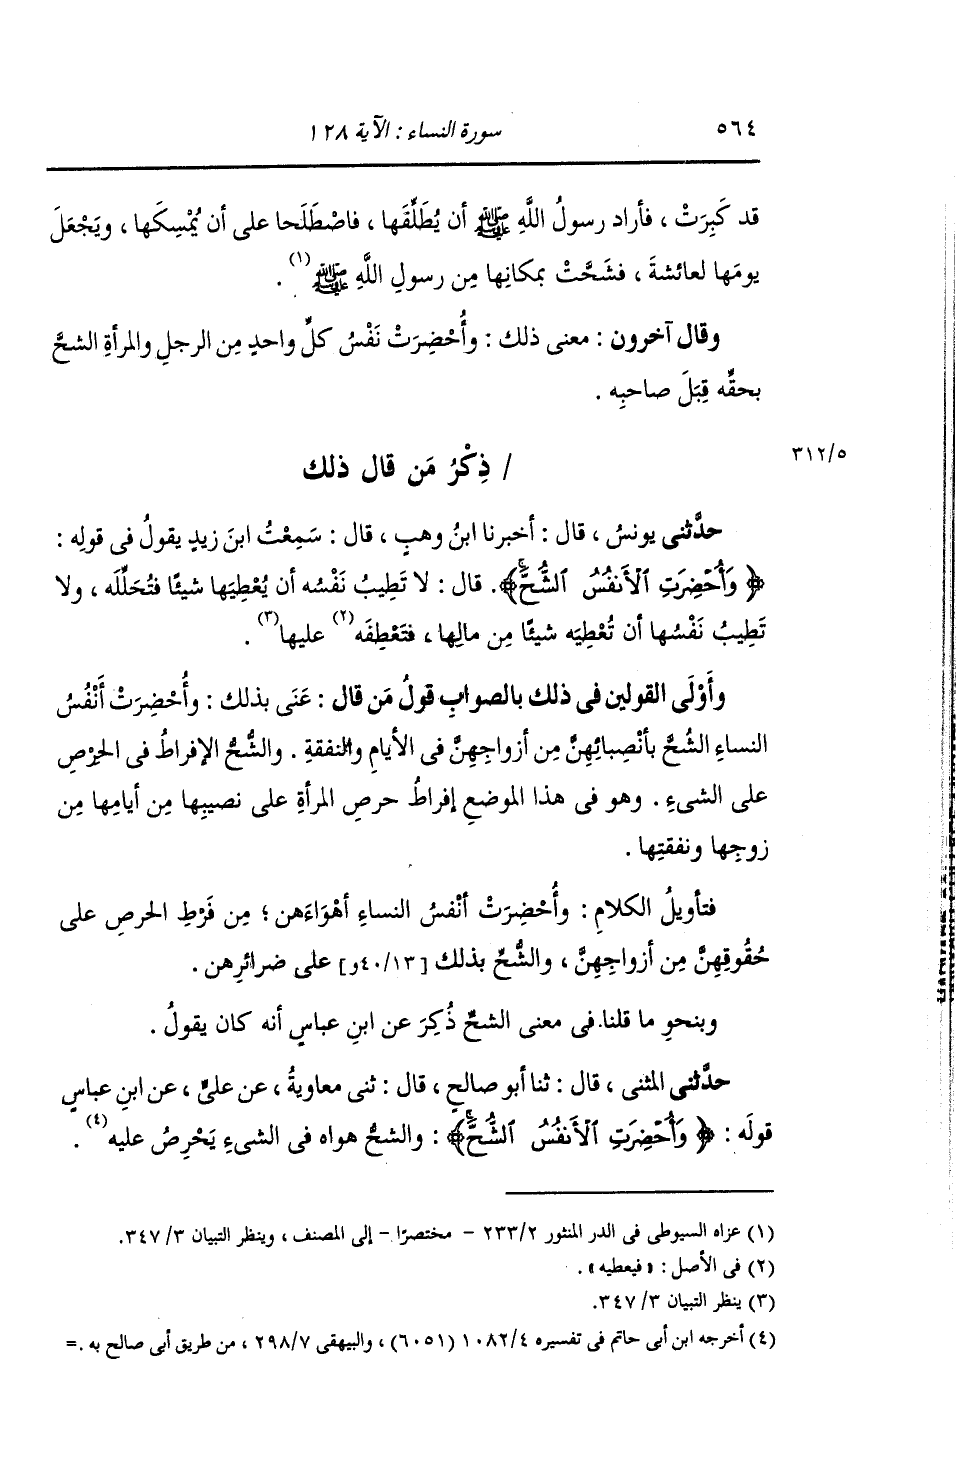 ٥٦٤
سورة النساء : الآية ١٢٨
قد كَبِرَتْ ، فأراد رسولُ اللَّهِ ﷺ أن يُطَلِّقَها ، فاصْطَلَحا على أن يُمْسِكَها ، ويَجْعَلَ
يومَها لعائشةَ ، فشَحَّتْ بمكانِها مِن رسولِ اللَّهِ ﷺ (١) .
وقال آخرون : معنى ذلك : وأُحْضِرَتْ نَفْسُ كلِّ واحدٍ مِن الرجلِ والمرأةِ الشحَّ
بحقِّه قِبَلَ صاحبِه .
٣١٢/٥
/ ذِكْرُ مَن قال ذلك
حدَّثنى يونسُ ، قال : أخبرنا ابنُ وهبٍ ، قال : سَمِعْتُ ابنَ زيدٍ يقولُ فى قولِه :
﴿ وَأُحْضِرَتِ ٱلْأَنفُسُ ٱلشُّحَّۚ﴾. قال : لا تَطِيبُ نَفْسُه أن يُعْطِيَها شيئًا فتُحَلِّلَه ، ولا
تَطِيبُ نَفْسُها أن تُعْطِيَه شيئًا مِن مالِها ، فتَعْطِفَه (٢) عليها (٣) .
وأَوْلَى القولين فى ذلك بالصوابِ قولُ مَن قال : عَنَى بذلك : وأُحْضِرَتْ أَنْفُسُ
النساءِ الشُّحَّ بأنْصِبائِهنَّ مِن أزواجِهنَّ فى الأيامِ والنفقةِ . والشُّحُّ الإفراطُ فى الحِرْصِ
على الشىءِ . وهو فى هذا الموضعِ إفراطُ حرصِ المرأةِ على نصيبِها مِن أيامِها مِن
زوجِها ونفقتِها .
فتأويلُ الكلامِ : وأُحْضِرَتْ أنْفسُ النساءِ أهْوَاءَهن ؛ مِن فَرْطِ الحرصِ على
حُقُوقِهنَّ مِن أزواجِهنَّ ، والشُّحِّ بذلك [٤٠/١٣و] على ضرائرِهن .
وبنحوِ ما قلنا فى معنى الشحِّ ذُكِرَ عن ابنِ عباسٍ أنه كان يقولُ .
حدَّثنى المثنى ، قال : ثنا أبو صالحٍ ، قال : ثنى معاويةُ ، عن علىٍّ ، عن ابنِ عباسٍ
قولَه : ﴿ وَأُحْضِرَتِ ٱلْأَنفُسُ ٱلشُّحَّۚ﴾ : والشحُّ هواه فى الشىءِ يَحْرِصُ عليه (٤) .
(١) عزاه السيوطى فى الدر المنثور ٢٣٣/٢ - مختصرًا - إلى المصنف ، وينظر التبيان ٣/ ٣٤٧.
(٢) فى الأصل : « فيعطيه » .
(٣) ينظر التبيان ٣/ ٣٤٧.
(٤) أخرجه ابن أبى حاتم فى تفسيره ١٠٨٢/٤ (٦٠٥١) ، والبيهقى ٢٩٨/٧ ، من طريق أبى صالح به .=